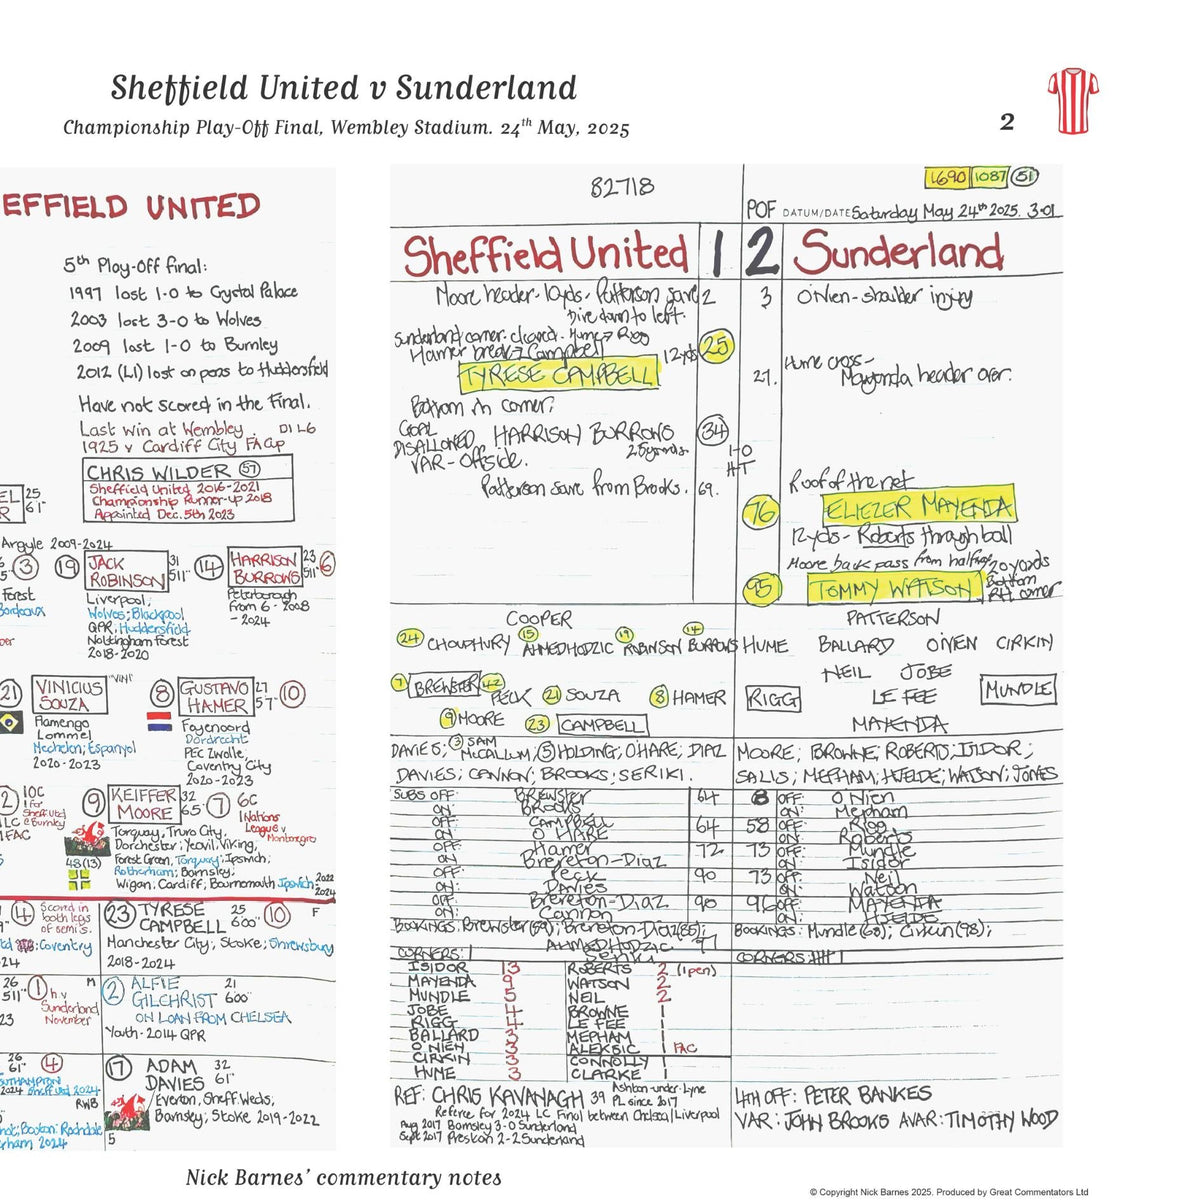 Sheffield United v Sunderland
Championship Play-Off Final, Wembley Stadium. 24th May, 2025
2
EFFIELD UNITED
5th Play-Off final:
1997 lost 1-0 to Crystal Palace
2003 lost 3-0 to Wolves
2009 lost 1-0 to Burnley
2012 (L1) lost on pens to Huddersfield
Have not scored in the final.
Last win at Wembley. D1 L6
1925 v Cardiff City FA Cup
CHRIS WILDER 57
Sheffield United 2016-2021
Championship Runner-up 2018
Appointed Dec. 5th 2023
EL 25
R 61"
Argyle 2009-2024
3
Forest
Bordeaux
19 JACK ROBINSON 31 511"
Liverpool;
Wolves; Blackpool
QPR; Huddersfield
Nottingham Forest
2018-2020
14 HARRISON BURROWS 23 511" 6
Peterborough
from 6 - 2018
- 2024
21 VINICIUS SOUZA "VINI"
Flamengo
Lommel
Mechelen; Espanyol
2020-2023
8 GUSTAVO HAMER 27 57" 10
Feyenoord
Dordrecht
PEC Zwolle,
Coventry City
2020-2023
2 10C
1 for
Sheff Utd
v Burnley
1LC
1FAC
9 KEIFFER MOORE 32 65" 7 6C
1 Nations
League v
Montenegro
48 (13)
Torquay, Truro City,
Dorchester; Yeovil; Viking,
Forest Green, Torquay; Ipswich;
Rotherham; Barnsley;
Wigan; Cardiff; Bournemouth Ipswich; 2022
2024
4 Scored in
both legs
of semis.
Coventry
24
23 TYRESE CAMPBELL 25 600" 10 F
Manchester City; Stoke; Shrewsbury
2018-2024
26
511" 1 h.v
Sunderland
November
M
23
2 ALFIE GILCHRIST 21 600"
ON LOAN FROM CHELSEA
Youth - 2014 QPR
26
61" 4
SOUTHAMPTON
2024 Sheff Utd 2024
RWB
Boston; Rochdale
2024
17 ADAM DAVIES 32 61"
Everton, Sheff Weds,
Barnsley; Stoke 2019-2022
5
82718
1690 1087 51
POF DATUM/DATE Saturday May 24th 2025. 3.01
Sheffield United 1 2 Sunderland
Moore header - 10yds - Patterson save 2
Dive down to left.
3 O'Nien - shoulder injury
Sunderland corner. cleared. Hume > Rigg
Hamer break > Campbell 12yds 25
TYRESE CAMPBELL
Bottom rh corner;
27. Hume cross -
Mayenda header over.
GOAL
DISALLOWED HARRISON BURROWS 34
VAR - Offside. 25yards.
1-0
HT
Patterson save from Brooks. 69.
Roof of the net
76 ELIEZER MAYENDA
12yds - Roberts through ball
Moore back pass from halfway 20 yards
95 TOMMY WATSON Bottom
RH corner
COOPER
24 CHOUDHURY 15 AHMEDHODZIC 19 ROBINSON 14 BURROWS
7 BREWSTER 42 PECK 21 SOUZA 8 HAMER
9 MOORE 23 CAMPBELL
PATTERSON
HUME BALLARD O'NIEN CIRKIN
NEIL JOBE
RIGG LE FEE MUNDLE
MAYENDA
DAVIES; 3 SAM McCALLUM; 5 HOLDING; O'HARE; DIAZ
DAVIES; CANNON; BROOKS; SERIKI.
MOORE; BROWNE; ROBERTS; ISIDOR;
SALIS; MEPHAM; HJELDE; WATSON; JONES
SUBS OFF: BREWSTER 64
ON: BROOKS
OFF: CAMPBELL 64
ON: O'HARE
OFF: Hamer 72
ON Brereton-Diaz
OFF: Peck 90
ON: Davies
OFF: Brereton-Diaz 90
ON: Cannon
8 OFF: O'Nien
ON: Mepham
58 OFF: Rigg
ON: Roberts
73 OFF: Mundle
ON: Isidor
73 OFF: Neil
ON: Watson
96 OFF: MAYENDA
ON: HJELDE
BOOKINGS: Brewster (59); Brereton-Diaz (85);
AHMEDHODZIC 97
BOOKINGS: Mundle (68); Cirkin (98);
CORNERS:
CORNERS:
ISIDOR 13
MAYENDA 9
MUNDLE 5
JOBE 4
RIGG 4
BALLARD 3
O'NIEN 3
CIRKIN 3
HUME 3
ROBERTS 2 (1pen)
WATSON 2
NEIL 2
BROWNE 1
LE FEE 1
MEPHAM 1
ALEKSIC 1 FAC
CONNOLLY 1
CLARKE 1
REF: CHRIS KAVANAGH 39 Ashton-under-Lyne
PL since 2017
Referee for 2024 LC Final between Chelsea/Liverpool
Aug 2017 Barnsley 3-0 Sunderland
Sept 2017 Preston 2-2 Sunderland
4TH OFF: PETER BANKES
VAR: JOHN BROOKS AVAR: TIMOTHY WOOD
Nick Barnes' commentary notes
© Copyright Nick Barnes 2025. Produced by Great Commentators Ltd